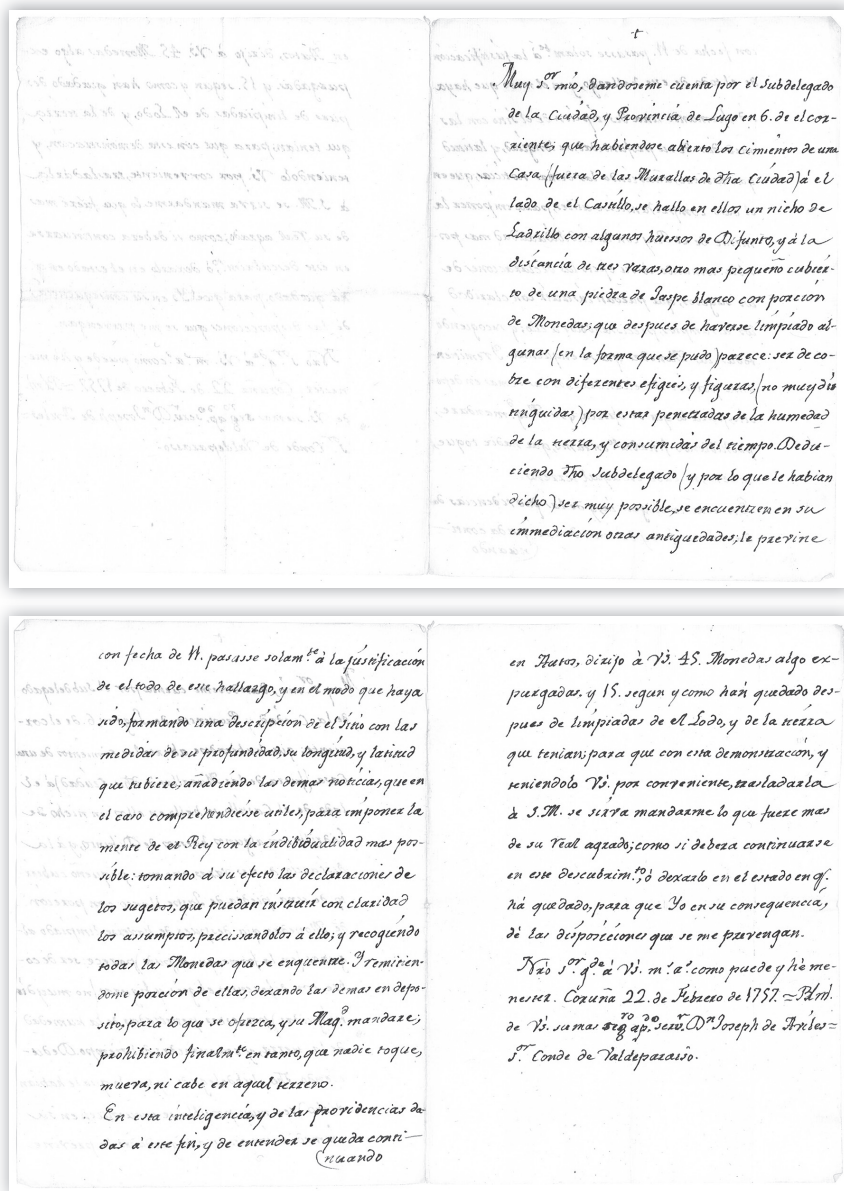 +
Muy s.or mío, dandoseme cuenta por el Subdelegado
de la Ciudad, y Provincia de Lugo en 6. de el cor-
riente; que habiendose abierto los cimientos de una
Casa (fuera de las Murallas de dha Ciudad) á el
lado de el Castillo, se hallo en ellos un nicho de
Ladrillo con algunos huessos de Difunto, y á la
distancia de tres varas, otro mas pequeño cubier-
to de una piedra de Jaspe blanco con porción
de Monedas; que despues de haverse limpiado al-
gunas (en la forma que se pudo) parece: ser de co-
bre con diferentes efigies, y figuras, (no muy dis
tinguidas) por estar penetradas de la humedad
de la tierra, y consumidas del tiempo. Dedu-
ciendo dho Subdelegado (y por lo que le habian
dicho) ser muy possible, se encuentren en su
immediación otras antiguedades; le previne
con fecha de 11. pasasse solam.te á la justificación
de el todo de este hallazgo, y en el modo que haya
sido, formando una descripción de el sitio con las
medidas de su profundidad, su longitud, y latitud
que tubiere; añadiendo las demas noticias, que en
el caso comprehendiesse utiles, para imponer la
mente de el Rey con la indibidualidad mas pos-
sible: tomando á su efecto las declaraciones de
los sugetos, que puedan instruir con claridad
los assumptos, precissandolos á ello; y recogiendo
todas las Monedas que se enquentre. Y remitien-
dome porción de ellas, dexando las demas en depo-
sito, para lo que se ofrezca, y su Mag.d mandare;
prohibiendo finalm.te en tanto, que nadie toque,
mueva, ni cabe en aquel terreno.
En esta inteligencia, y de las providencias da
das á este fin, y de entender se queda conti-
nuando
en Autos, dirijo á VS. 45. Monedas algo ex-
purgadas. y 15. segun y como han quedado des-
pues de limpiadas de el Lodo, y de la tierra
que tenian; para que con esta demonstración, y
teniendolo VS. por conveniente, trasladarla
á S.M. se sirva mandarme lo que fuere mas
de su Real agrado; como si debera continuarse
en este descubrim.to, ó dexarlo en el estado en q.
há quedado, para que Yo en su consequencia,
dé las disposiciones que se me prevengan.
Nro s.or g.de á VS. m.s a.s como puede y hé me-
nester. Coruña 22. de Febrero de 1757. = Blm.
de VS. su mas seg.ro ap.do serv.r Dn Joseph de Aviles =
s.or Conde de Valdeparaiso.